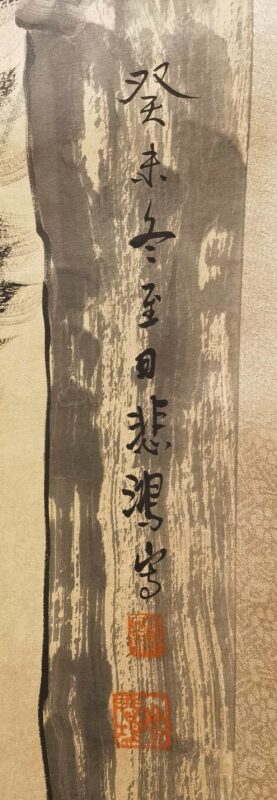 癸未冬至日悲鴻寫